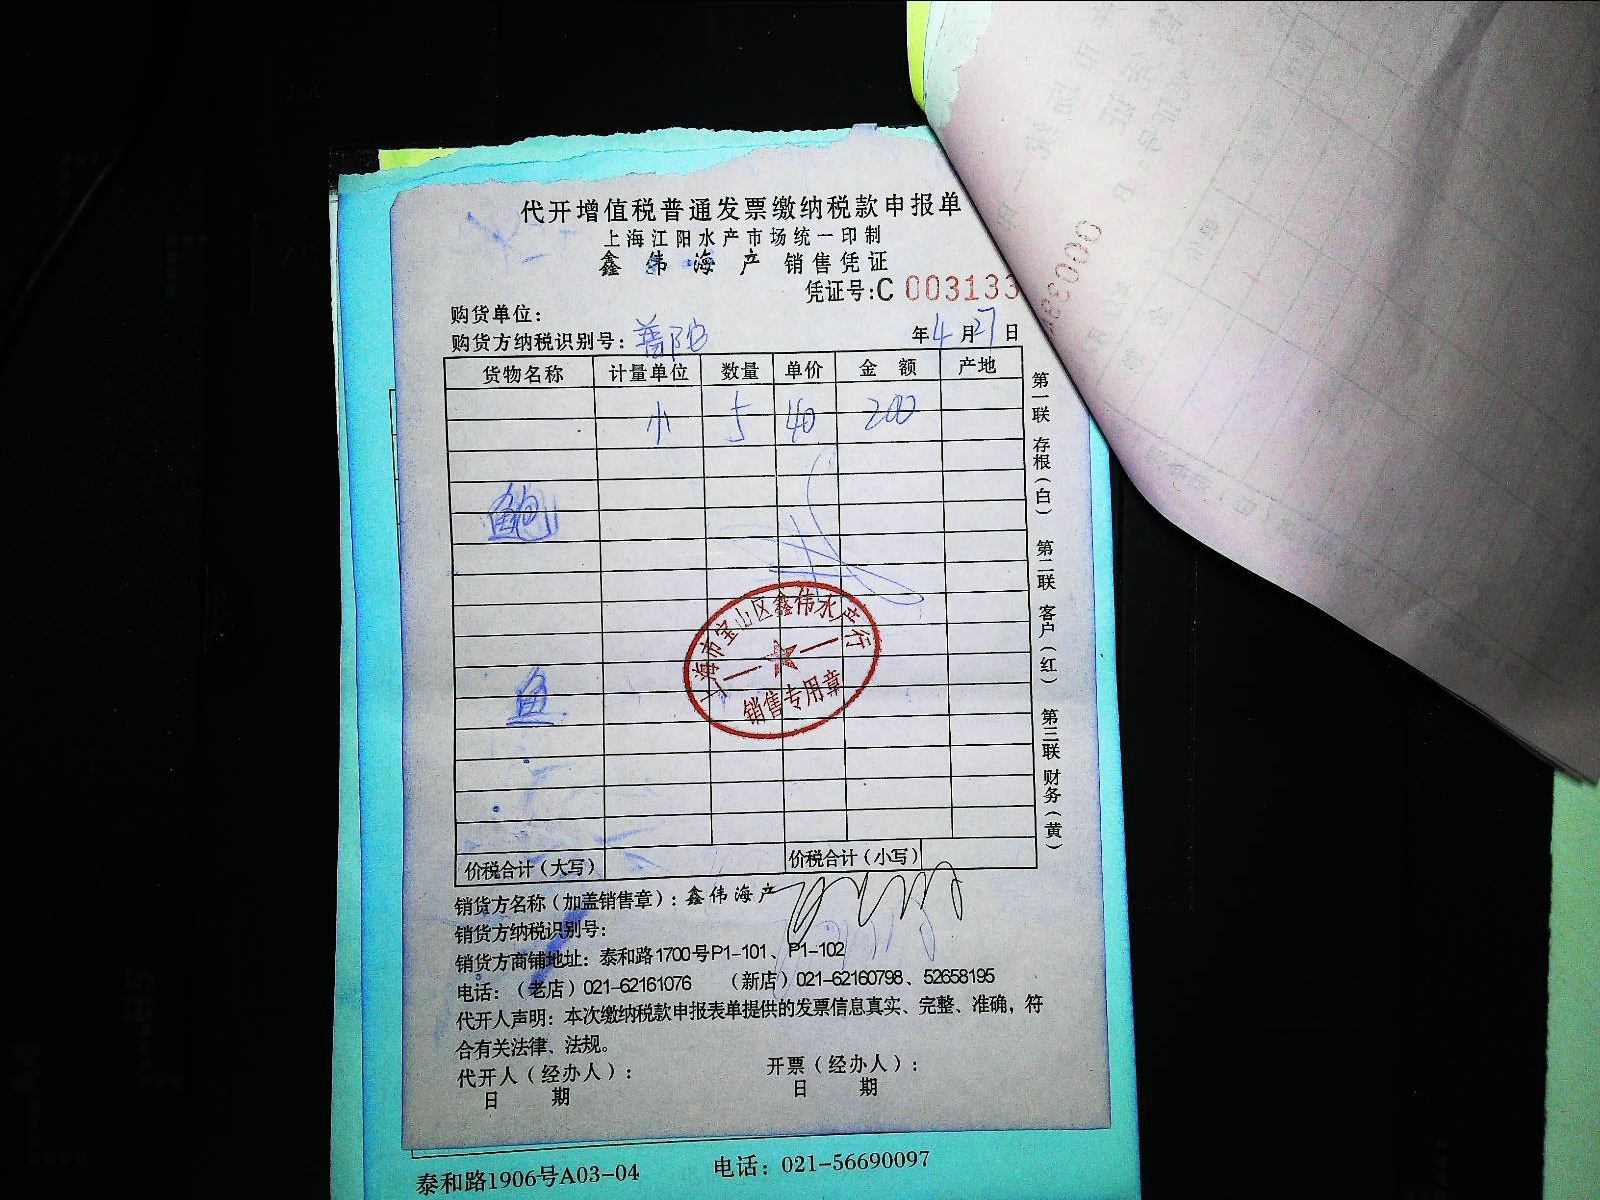 代开增值税普通发票缴纳税款申报单
上海江阳水产市场统一印制
鑫伟海产 销售凭证
凭证号:C 003133
购货单位:
购货方纳税识别号: 普陀 年4月27日
货物名称 计量单位 数量 单价 金额 产地
小 5 40 200
鲍
鱼
价税合计(大写) 价税合计(小写)
上海市宝山区鑫伟水产行
销售专用章
第一联 存根(白) 第二联 客户(红) 第三联 财务(黄)
销货方名称(加盖销售章): 鑫伟海产
销货方纳税识别号:
销货方商铺地址: 泰和路1700号P1-101、P1-102
电话:(老店)021-62161076 (新店)021-62160798、52658195
代开人声明: 本次缴纳税款申报表单提供的发票信息真实、完整、准确,符
合有关法律、法规。
代开人(经办人): 开票(经办人):
日 期 日 期
泰和路1906号A03-04 电话: 021-56690097